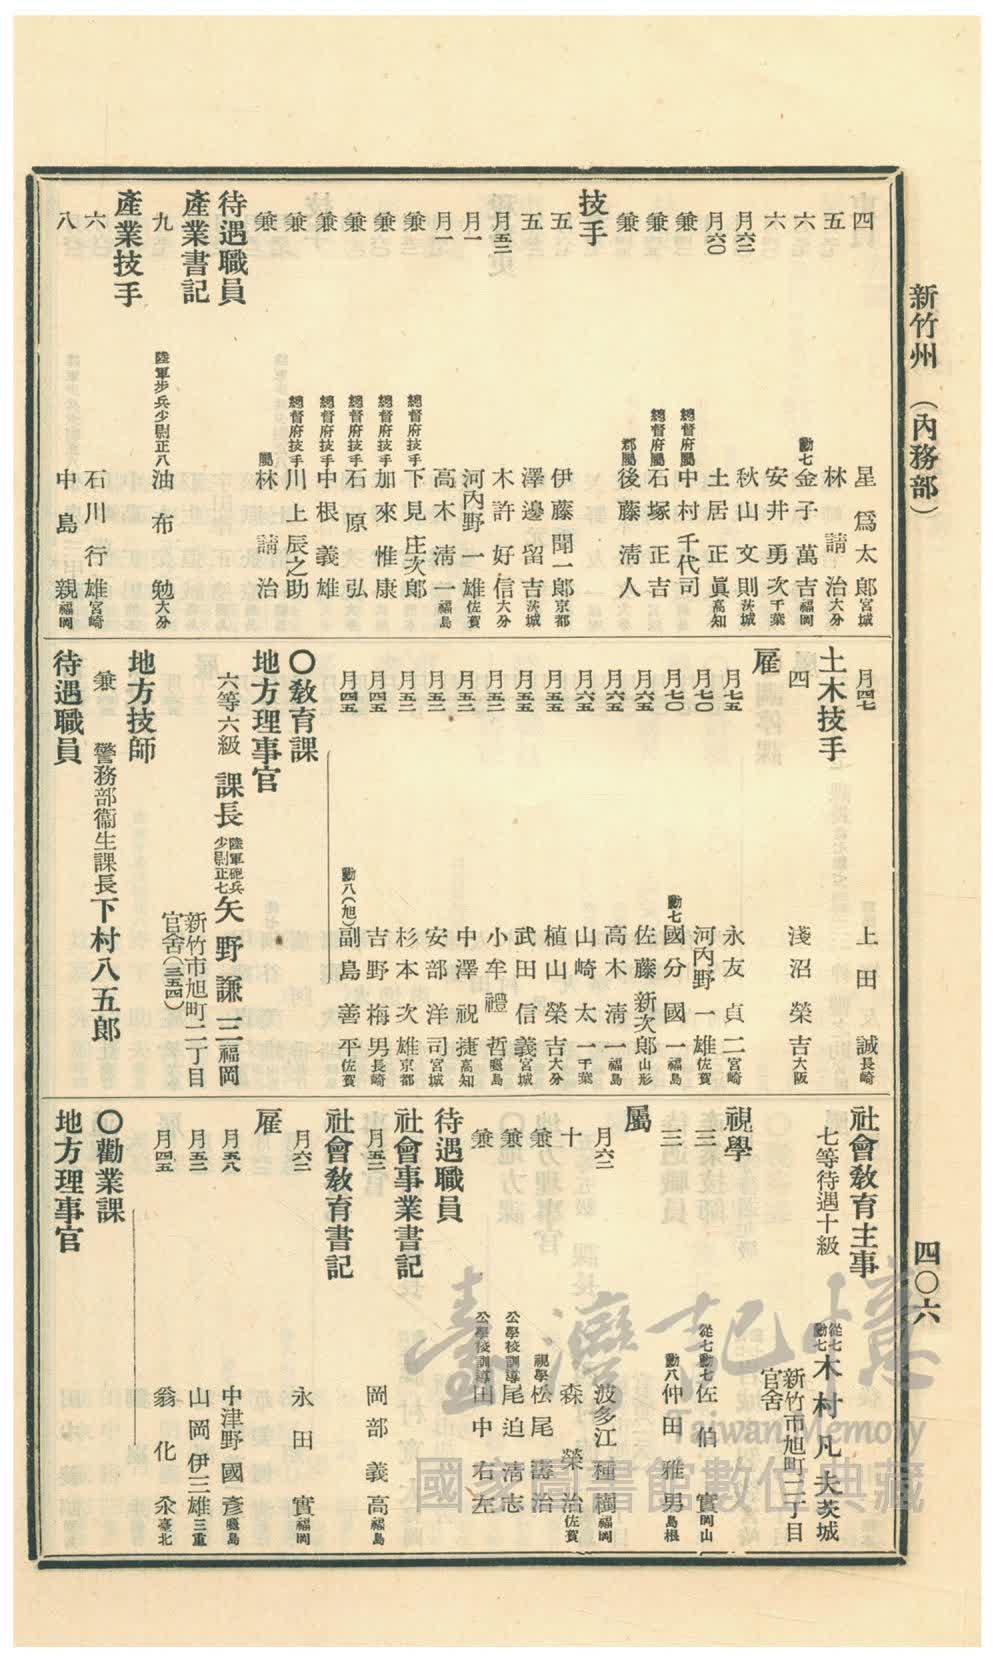 新竹州 (內務部)
四〇六
四 星爲太郞 宮城
五 林請治 大分
六 勳七 金子萬吉 福岡
六 安井勇次 千葉
月六二 秋山文則 茨城
月六〇 土居正眞 高知
兼 總督府屬 中村千代司
兼 總督府屬 石塚正吉
兼 郡屬 後藤淸人
技手
五 伊藤聞一郞 京都
五 澤邊留吉 茨城
月五二 木許好信 大分
月一 河內野一雄 佐賀
月一 高木淸一 福島
兼 總督府技手 下見庄次郞
兼 總督府技手 加來惟康
兼 總督府技手 石原弘
兼 總督府技手 中根義雄
兼 總督府技手 川上辰之助
兼 屬 林請治
待遇職員
產業書記
九 陸軍步兵少尉正八 油布勉 大分
產業技手
六 石川行雄 宮崎
八 中島親 福岡
月四七 上田誠 長崎
土木技手
四 淺沼榮吉 大阪
雇
月七五 永友貞二 宮崎
月七〇 河內野一雄 佐賀
月七〇 勳七 國分國一 福島
月六五 佐藤新次郞 山形
月六五 高木淸一 福島
月六五 山崎太一 千葉
月五五 植山榮吉 大分
月五五 武田信義 宮城
月五二 小牟禮哲 鹿島
月五二 中澤祝捷 高知
月五二 安部洋司 宮城
月五二 杉本次雄 京都
月四五 吉野梅男 長崎
月四五 勳八(旭) 副島善平 佐賀
〇敎育課
地方理事官
六等六級 課長 陸軍砲兵少尉正七 矢野謙三 福岡
新竹市旭町二丁目
官舍(三五四)
地方技師
兼 警務部衞生課長 下村八五郎
待遇職員
社會敎育主事
七等待遇十級 從七勳七 木村凡夫 茨城
新竹市旭町二丁目
官舍
視學
三 從七勳七 佐伯實 岡山
三 勳八 仲田雅男 島根
屬
月六二 波多江種樹 福岡
十 森榮治 佐賀
兼 視學 松尾壽治
兼 公學校訓導 尾迫淸志
兼 公學校訓導 田中右左
待遇職員
社會事業書記
月五二 岡部義高 福島
社會敎育書記
月六二 永田實 福岡
雇
月五八 中津野國彥 鹿島
月五二 山岡伊三雄 三重
月四五 翁化汆 臺北
〇勸業課
地方理事官
臺灣記憶
Taiwan Memory
國家圖書館數位典藏